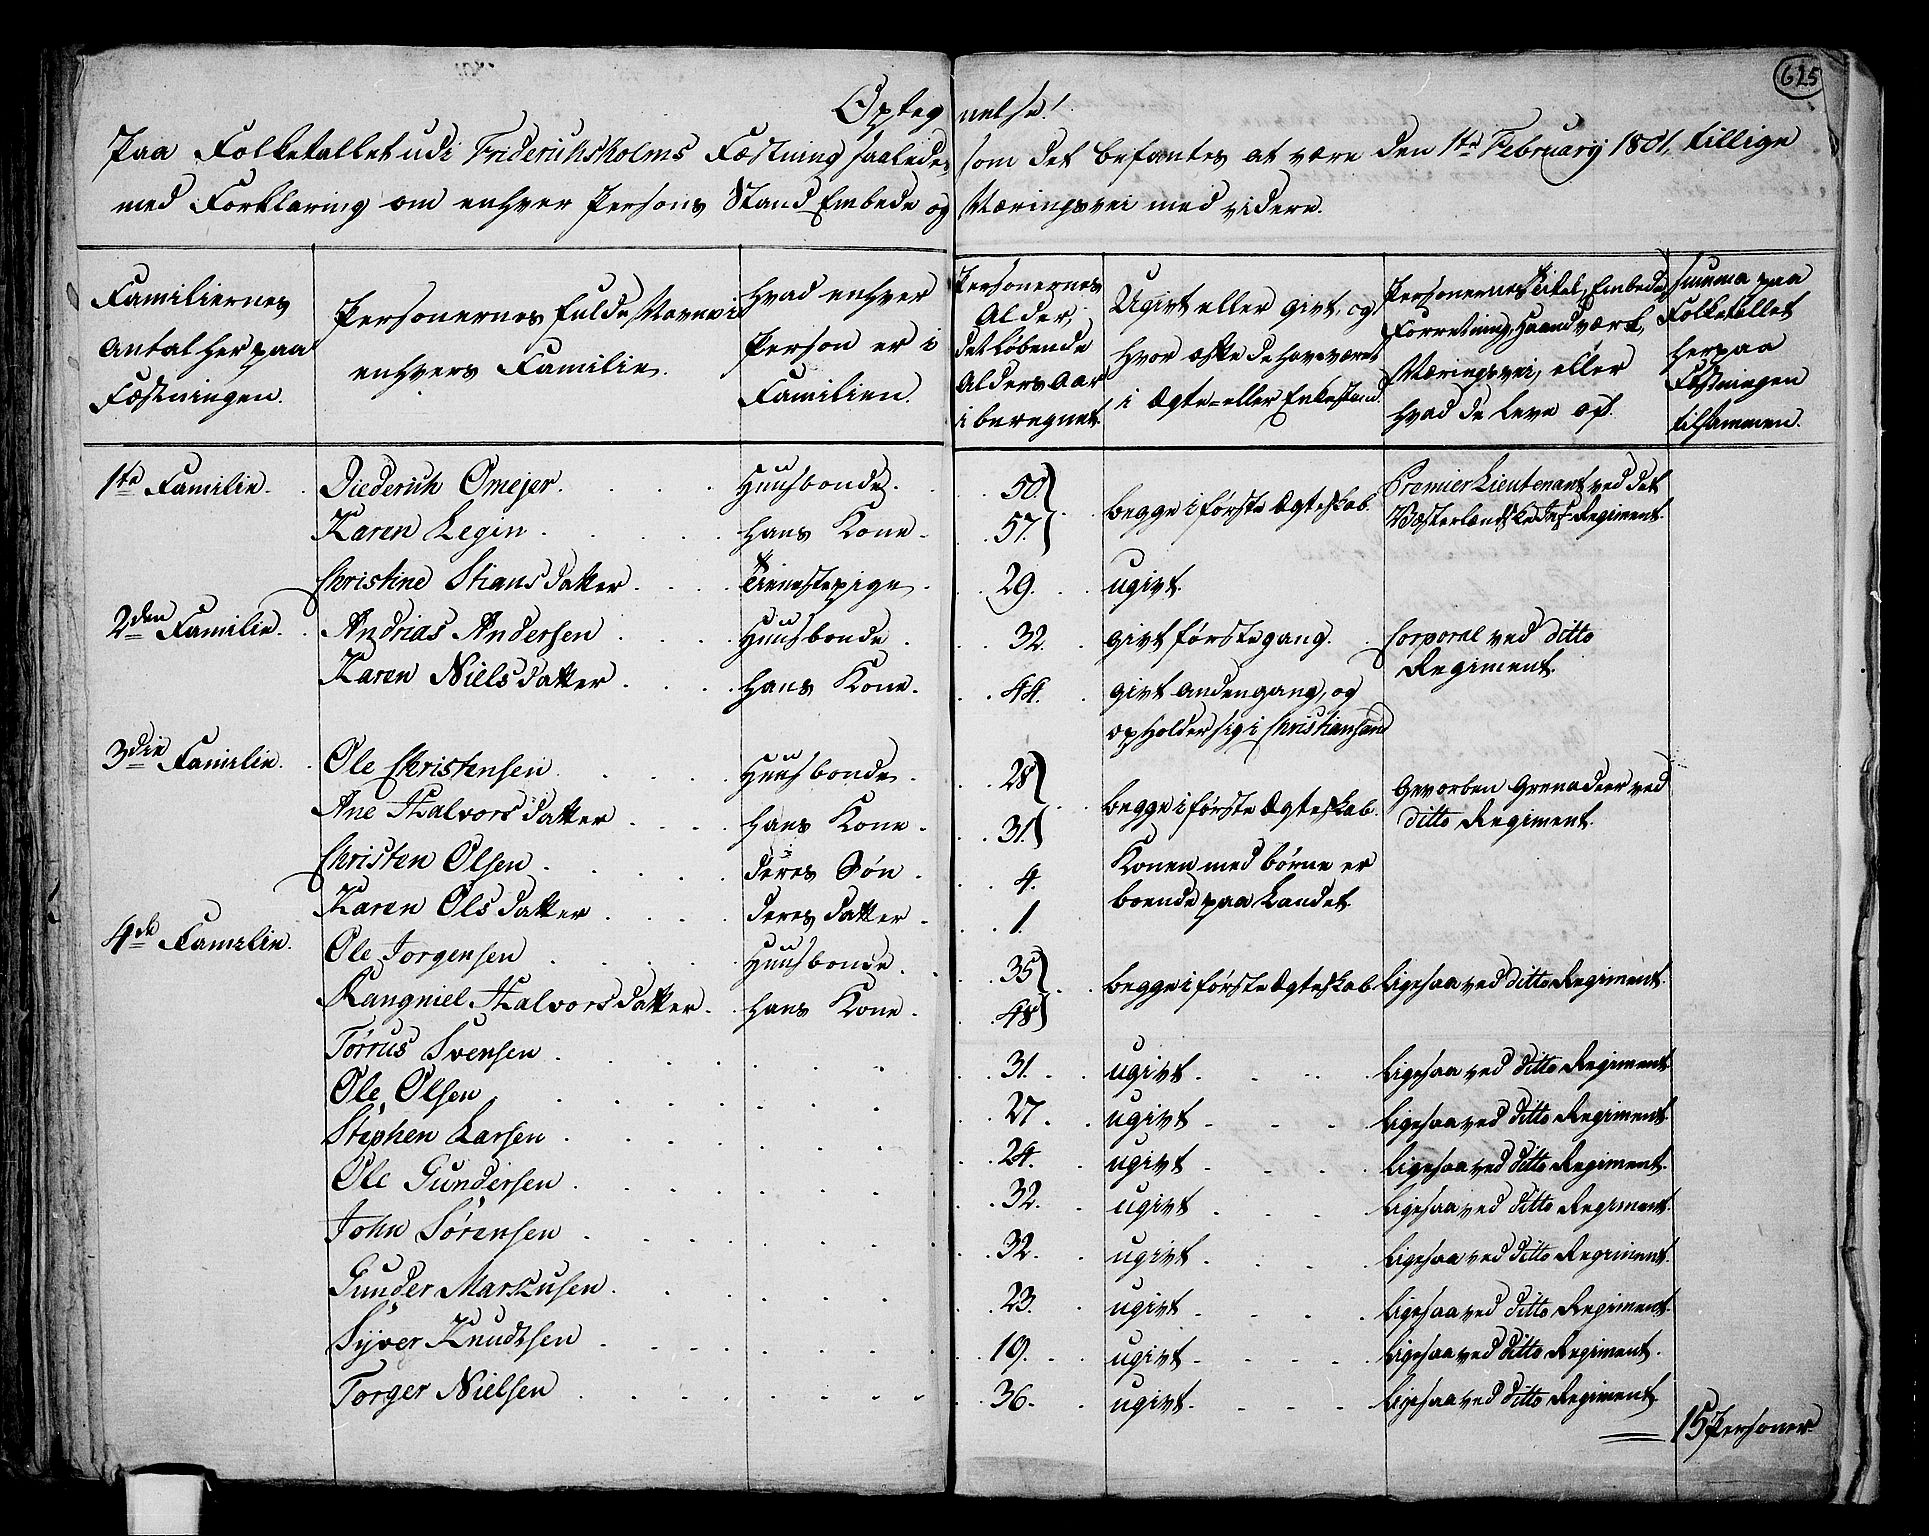 625
Opteg nelse!
Paa Folketallet udi Friderichsholms Fæstning saaledes som det befantes at være den 1te February 1801, tillige
med Forklaring om enhver Persons Stand Embede og Næringsvei med videre.
Familiernes Antal her paa Fæstningen.
Personernes fulde Navne i enhvers Familie.
Hvad enhver Person er i Familien.
Personernes Alder, det løbende Alders Aar iberegnet.
Ugivt eller givt, og hvor ofte de have været i Ægte- eller Enkestand.
Personernes Titel, Embede, Forretning, Haandværk, Næringsvei, eller hvad de leve af.
Summa paa Folketallet herpaa Fæstningen tilsammen.
1te Familie. Diederich Omejer. Huusbonde. 50 begge i første Ægteskab Premier Lieutenant ved det
Karen Legin. Hans Kone. 57. Væsterlændske Inf. Regiment.
Christine Stiansdatter. Tienestepige. 29. ugivt.
2den Familie. Andrias Andersen Huusbonde. 32. givt første gang. Corporal ved ditto
Regiment.
Karen Nielsdatter. Hans Kone. 44. givt anden gang, og
opholder sig i Christiansand
3die Familie. Ole Christensen Huusbonde. 28 begge i første Ægteskab. Gevorben Grenadeer ved
Ane Halvorsdatter Hans Kone. 31. ditto Regiment.
Christen Olsen. deres Søn. 4. Konen med børne er
Karen Olsdatter deres datter. 1. boende paa Landet.
4de Familie. Ole Jorgensen Huusbonde. 35 begge i første Ægteskab Ligesaa ved ditto Regiment.
Rangniel Halvorsdatter. Hans Kone. 48
Torrus Svensen 31. ugivt. Ligesaa ved ditto Regiment
Ole Olsen 27. ugivt Ligesaa ved ditto Regiment.
Stephen Larsen 24. ugivt Ligesaa ved ditto Regiment.
Ole Gundersen 32. ugivt Ligesaa ved ditto Regiment.
John Sörensen 32. ugivt Ligesaa ved ditto Regiment.
Gunder Markusen 23. ugivt Ligesaa ved ditto Regiment.
Syver Knudtsen 19. ugivt Ligesaa ved ditto Regiment.
Torger Nielsen 36. ugivt. Ligesaa ved ditto Regiment.
15 Personer.